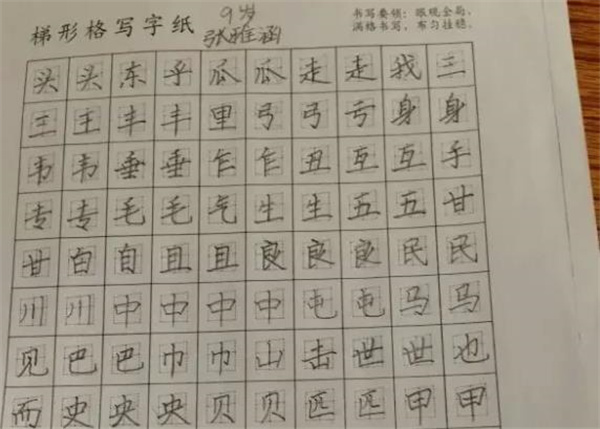 梯形格写字纸
9岁
张雅涵
书写要领：眼观全局，
满格书写，布匀挂稳。
头头东乎瓜瓜走走我三
三主丰丰里弓弓亏身身
韦韦垂垂乍乍丑互互手
专专毛毛气生生五五甘
甘白自且且良良良民民
川川中中中中屯屯马马
见巴巴巾巾山击世世也
而史央央贝贝匹匹甲甲